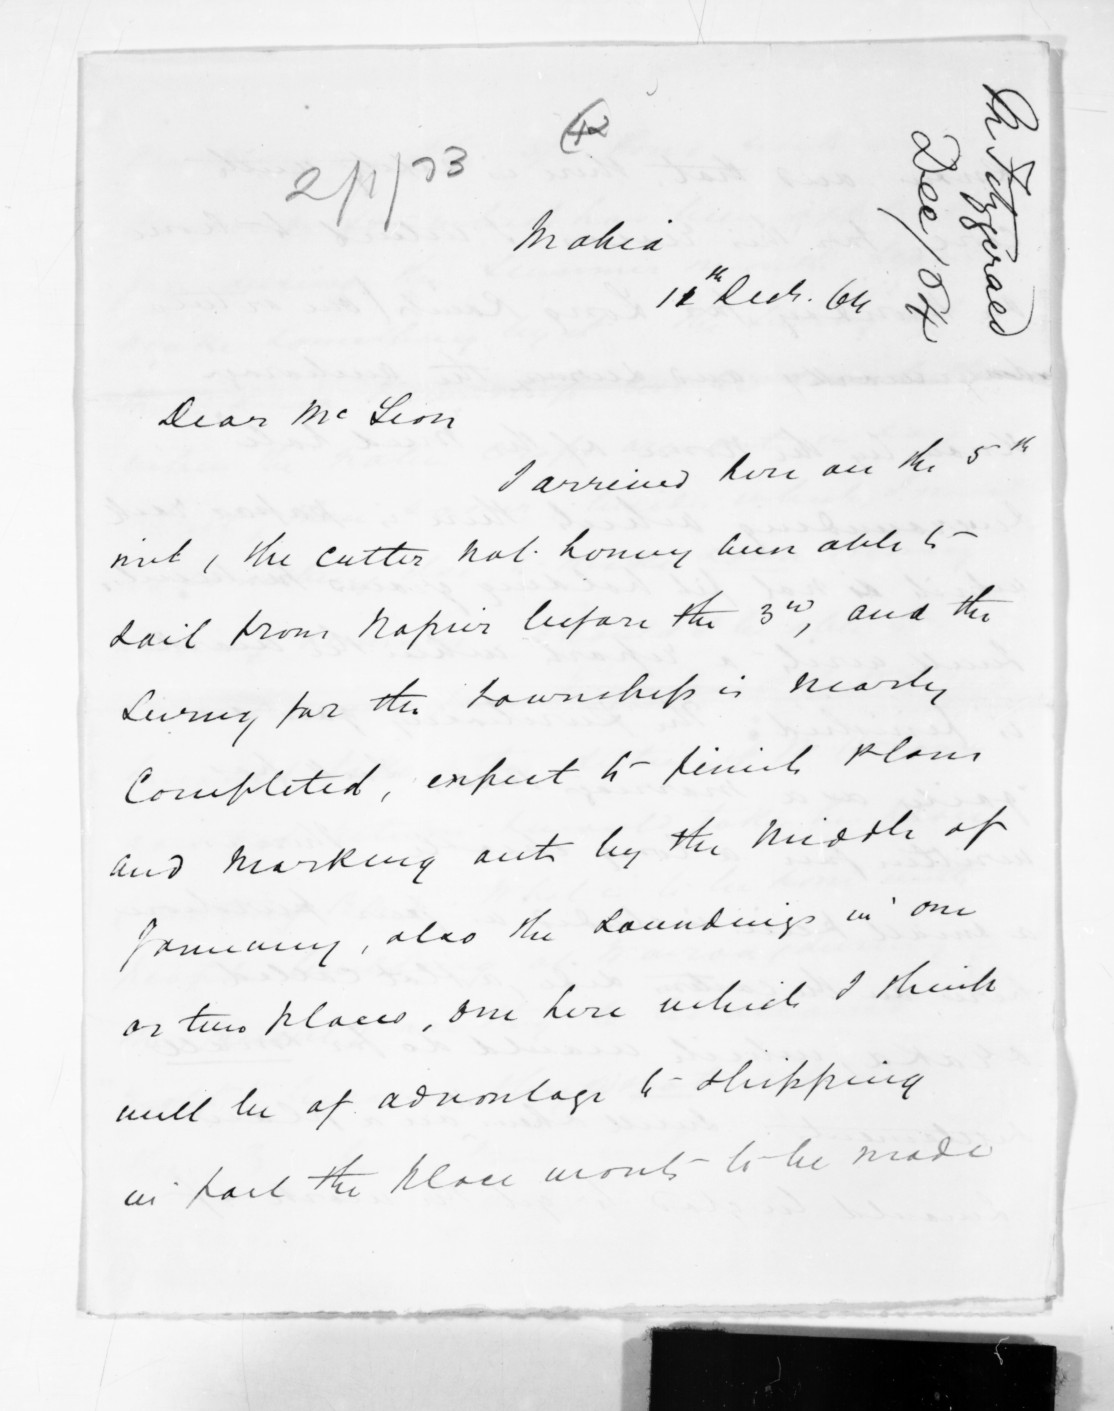 42
2/1/73
M Fitzgerald
Dec/64
Mahia
12th Decr. 64
Dear McLean
I arrived here on the 5th
inst, the cutter not having been able to
sail from Napier before the 3rd, and the
Survey for the township is nearly
Completed, expect to finish plans
and marking out by the middle of
January, also the soundings in one
or two places, one here which I think
will be of advantage to shipping
in fact the place wants to be made